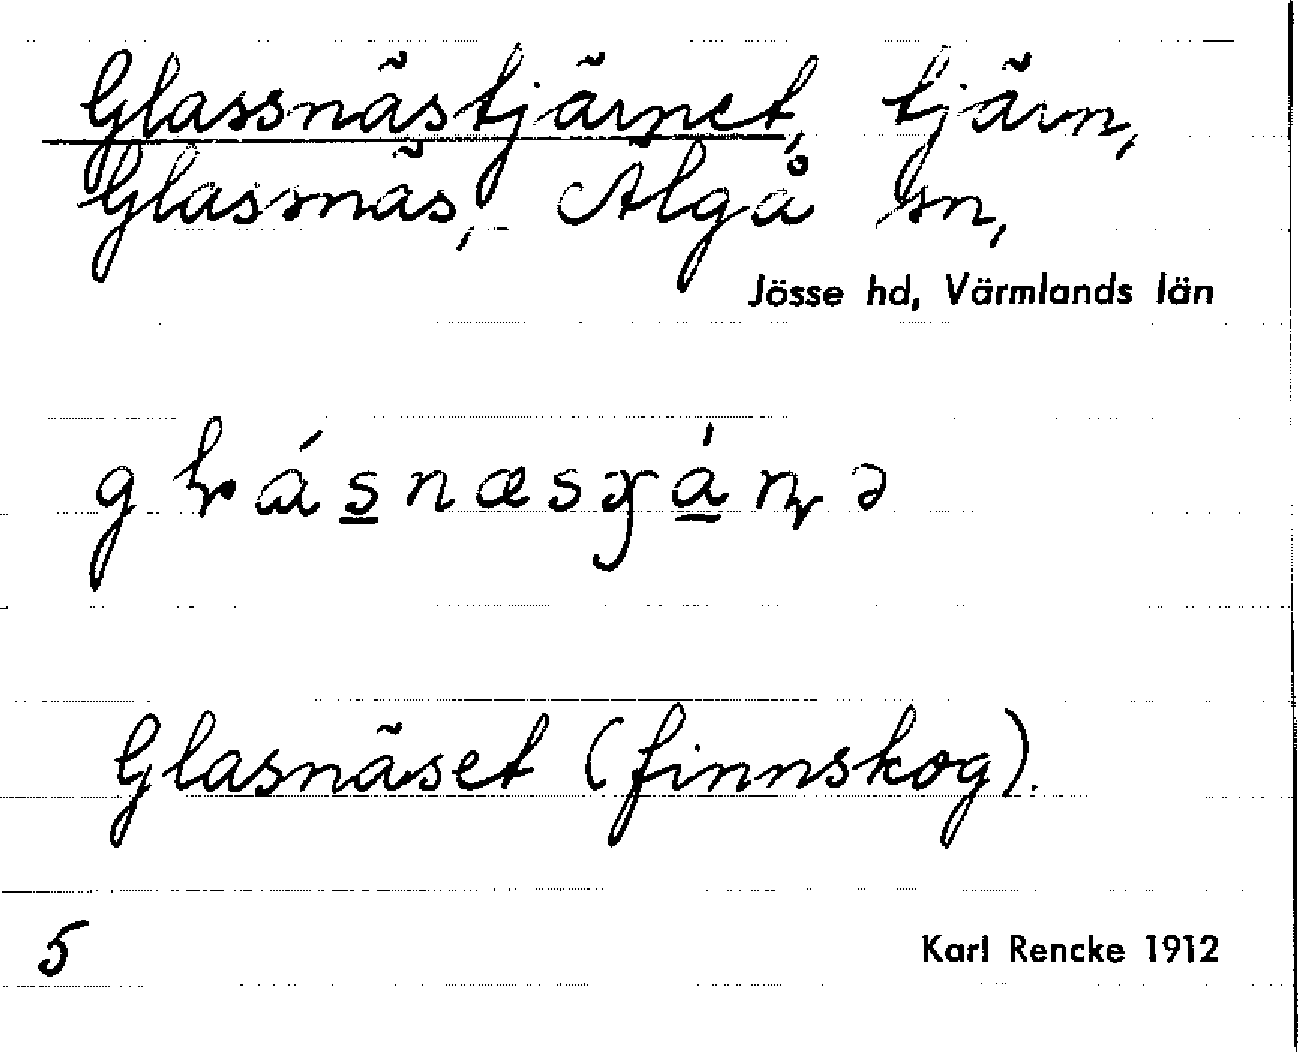 Glassnästjärnet, tjärn,
Glassnäs, Älgå sn,
Jösse hd, Värmlands län
Glasnäset (finnskog).
5
Karl Rencke 1912